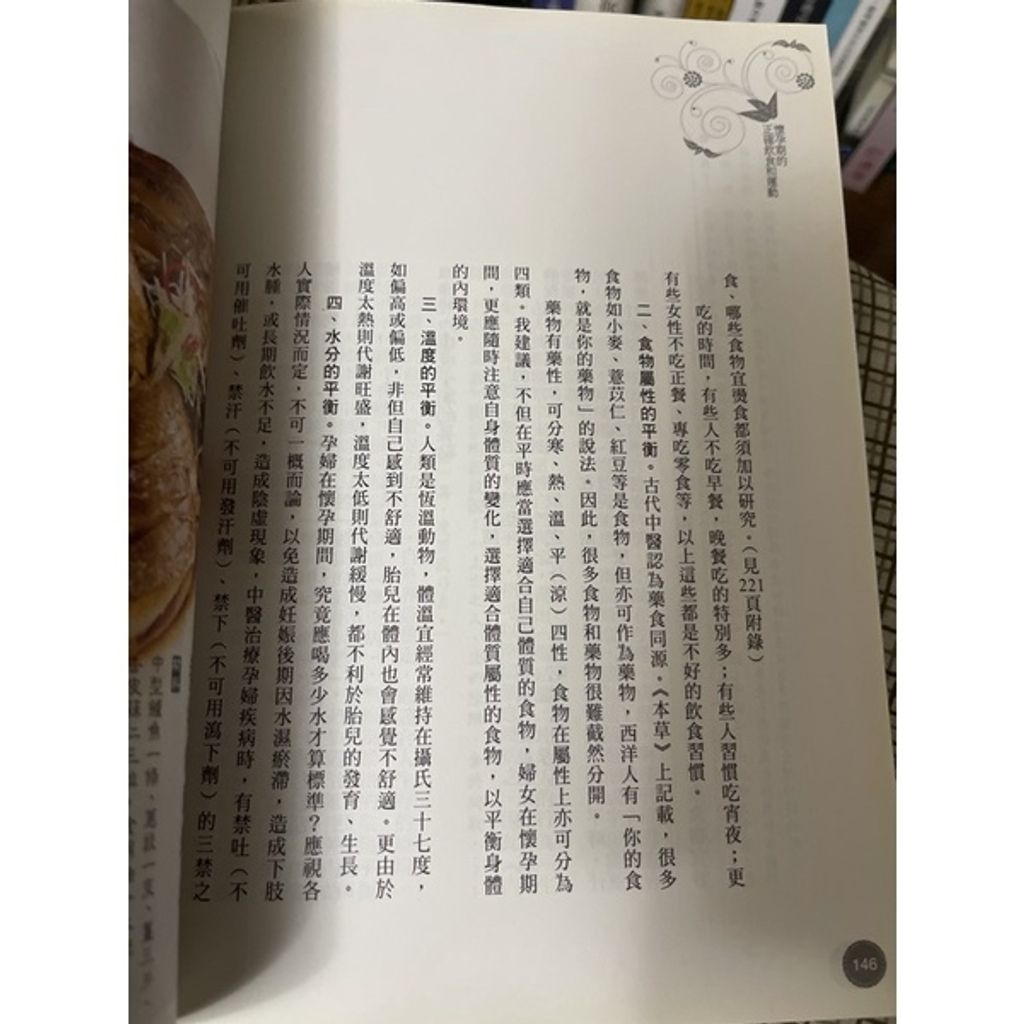 懷孕期的
正確飲食和運動
食、哪些食物宜燙食都須加以研究。(見221頁附錄)
吃的時間,有些人不吃早餐,晚餐吃的特別多;有些人習慣吃宵夜;更
有些女性不吃正餐、專吃零食等,以上這些都是不好的飲食習慣。
二、食物屬性的平衡。古代中醫認為藥食同源。《本草》上記載,很多
食物如小麥、薏苡仁、紅豆等是食物,但亦可作為藥物,西洋人有「你的食
物,就是你的藥物」的說法。因此,很多食物和藥物很難截然分開。
藥物有藥性,可分寒、熱、溫、平(涼)四性,食物在屬性上亦可分為
四類。我建議,不但在平時應當選擇適合自己體質的食物,婦女在懷孕期
間,更應隨時注意自身體質的變化,選擇適合體質屬性的食物,以平衡身體
的內環境。
三、溫度的平衡。人類是恆溫動物,體溫宜經常維持在攝氏三十七度,
如偏高或偏低,非但自己感到不舒適,胎兒在體內也會感覺不舒適。更由於
溫度太熱則代謝旺盛,溫度太低則代謝緩慢,都不利於胎兒的發育、生長。
四、水分的平衡。孕婦在懷孕期間,究竟應喝多少水才算標準?應視各
人實際情況而定,不可一概而論,以免造成妊娠後期因水濕瘀滯,造成下肢
水腫,或長期飲水不足,造成陰虛現象,中醫治療孕婦疾病時,有禁吐(不
可用催吐劑)、禁汗(不可用發汗劑)、禁下(不可用瀉下劑)的三禁之
146
中型鱸魚一條、蔥